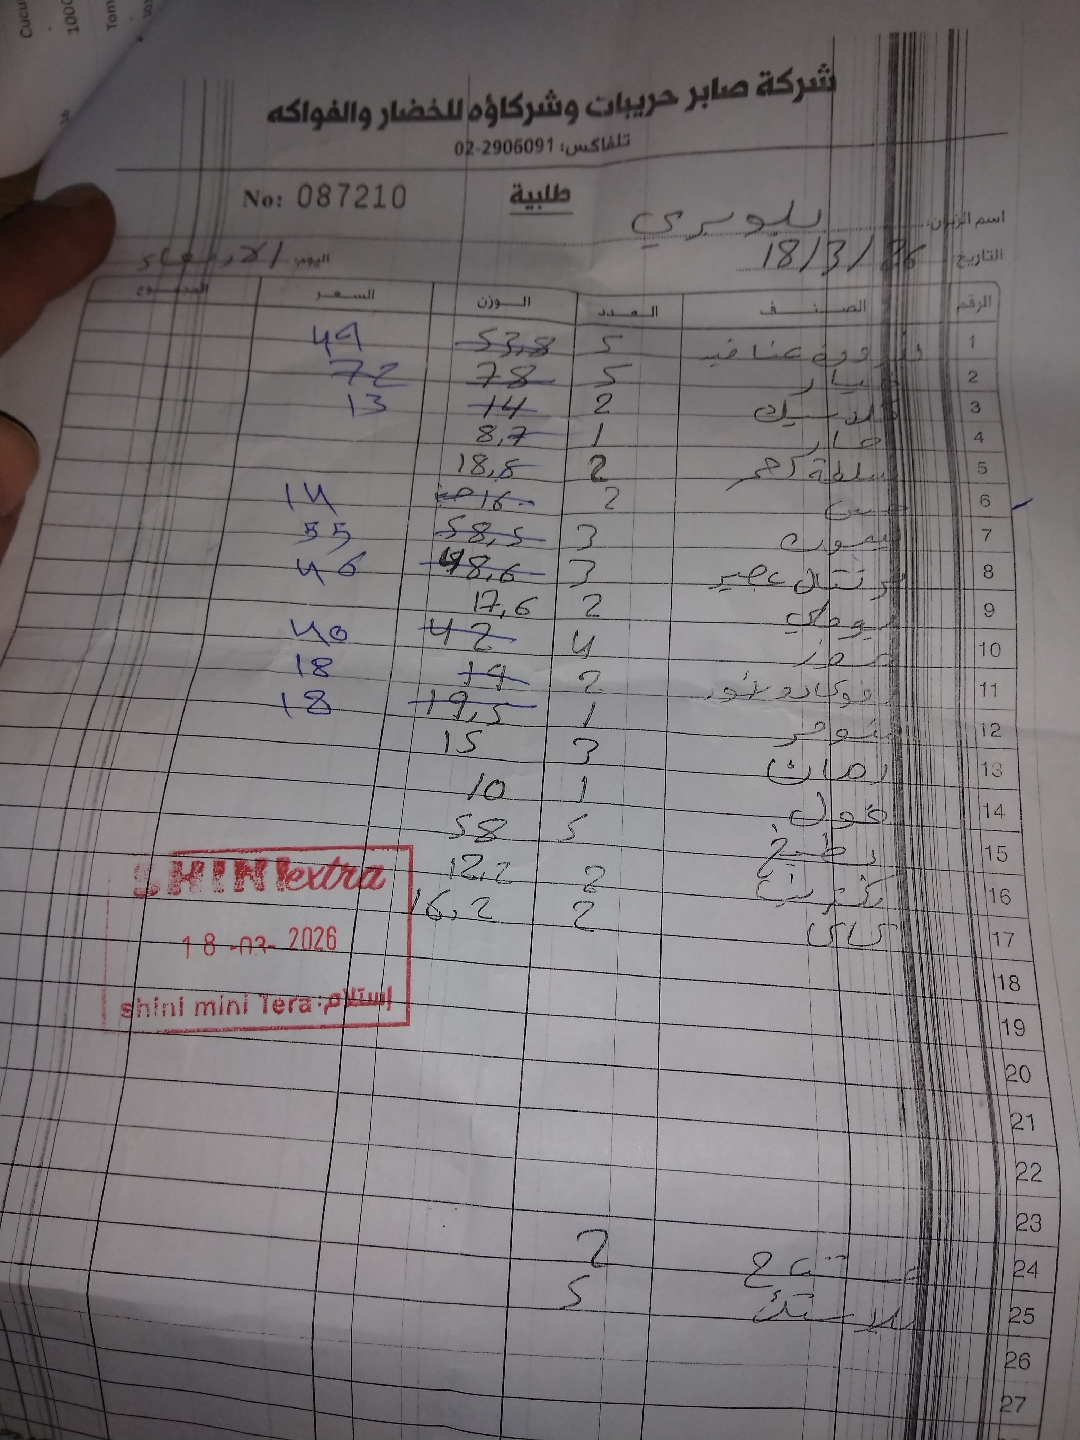 شركة صابر حريبات وشركاؤه للخضار والفواكه
تلفاكس: 02-2906091
No: 087210 طلبية
اسم الزبون:
اليوم: الاربعاء التاريخ: 18/3/26
الرقم الصنف العدد الوزن السعر المجموع
1 بندورة عناقيد 5 53,8 49
2 خيار 5 78 72
3 كلاسيك 2 14 13
4 حار 1 8,7
5 2 18,5
6 خس 2 16 14
7 ليمون 3 58,5 55
8 برتقال عصير 3 48,6 46
9 بوملي 2 17,6
10 موز 4 42 40
11 2 19 18
12 1 19,5 18
13 رمان 3 15
14 فول 1 10
15 بطيخ 5 58
16 2 12,2
17 2 16,2
18
19
20
21
22
23
24 2
25 بلاستك 5
26
27
SHINI extra
18 -03- 2026
shini mini Tera :إستلام
Cucu
1000
Tom